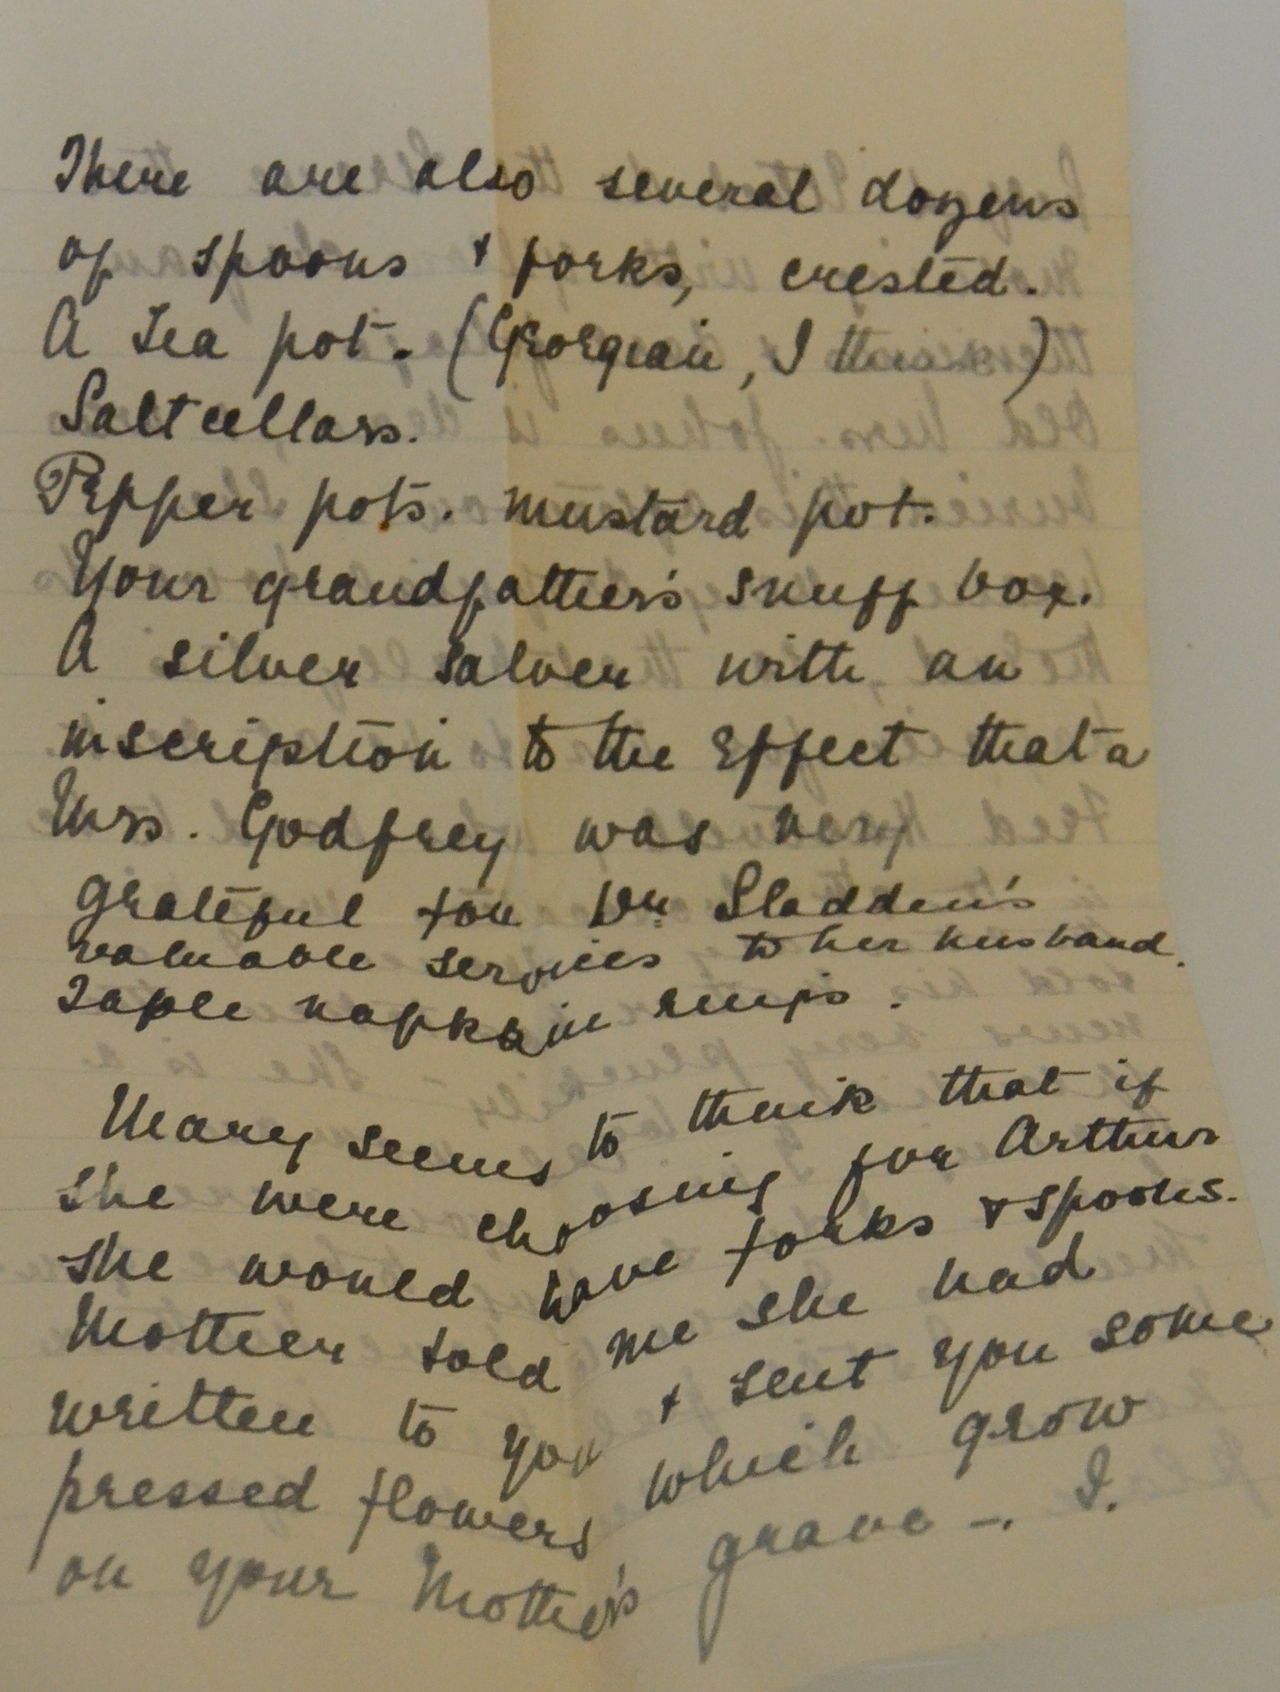 There are also several dozens
of spoons & forks, crested.
A Tea pot. (Georgian, I think)
Salt cellars.
Pepper pots. Mustard pot.
Your grandfather's snuff box.
A silver salver with an
inscription to the effect that a
Mrs. Godfrey was very
grateful for Dr. Sladden's
valuable services to her husband.
Table napkin rings.
Mary seems to think that if
she were choosing for Arthur
she would have forks & spoons.
Mother told me she had
written to you & sent you some
pressed flowers, which grow
on your Mother's grave -. I.